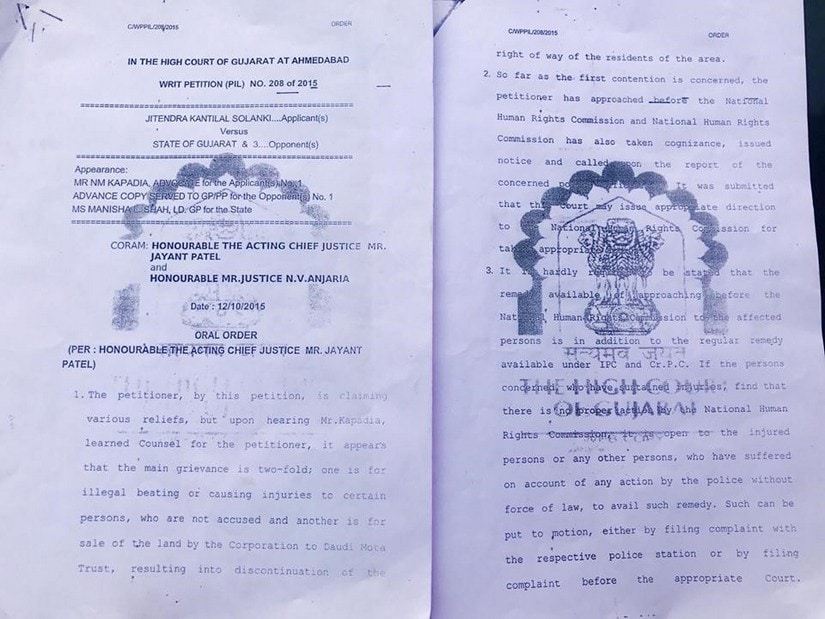 C/WPPIL/208/2015
ORDER
IN THE HIGH COURT OF GUJARAT AT AHMEDABAD
WRIT PETITION (PIL) NO. 208 of 2015
JITENDRA KANTILAL SOLANKI....Applicant(s)
Versus
STATE OF GUJARAT & 3....Opponent(s)
Appearance:
MR NM KAPADIA, ADVOCATE for the Applicant(s) No. 1
ADVANCE COPY SERVED TO GP/PP for the Opponent(s) No. 1
MS MANISHA L. SHAH, LD. GP for the State
CORAM: HONOURABLE THE ACTING CHIEF JUSTICE MR.
JAYANT PATEL
and
HONOURABLE MR.JUSTICE N.V.ANJARIA
Date : 12/10/2015
ORAL ORDER
(PER : HONOURABLE THE ACTING CHIEF JUSTICE MR. JAYANT
PATEL)
1. The petitioner, by this petition, is claiming
various reliefs, but upon hearing Mr.Kapadia,
learned Counsel for the petitioner, it appears
that the main grievance is two-fold; one is for
illegal beating or causing injuries to certain
persons, who are not accused and another is for
sale of the land by the Corporation to Daudi
Trust, resulting into discontinuation of the
C/WPPIL/208/2015
ORDER
right of way of the residents of the area.
2. So far as the first contention is concerned, the
petitioner has approached before the National
Human Rights Commission and National Human Rights
Commission has also taken cognizance, issued
notice and called upon the report of the
concerned It was submitted
that this Court may issue appropriate direction
to National Human Rights Commission for
appropriate
3. It is hardly required to be stated that the
remedy available of approaching before the
National Human Rights Commission to the affected
persons is in addition to the regular remedy
available under IPC and Cr.P.C. If the persons
concerned, who have sustained injuries, find that
there is no proper action by the National Human
Rights Commission, it is open to the injured
persons or any other persons, who have suffered
on account of any action by the police without
force of law, to avail such remedy. Such can be
put to motion, either by filing complaint with
the respective police station or by filing
complaint before the appropriate Court.
सत्यमेव जयते
THE HIGH COURT
OF GUJARAT